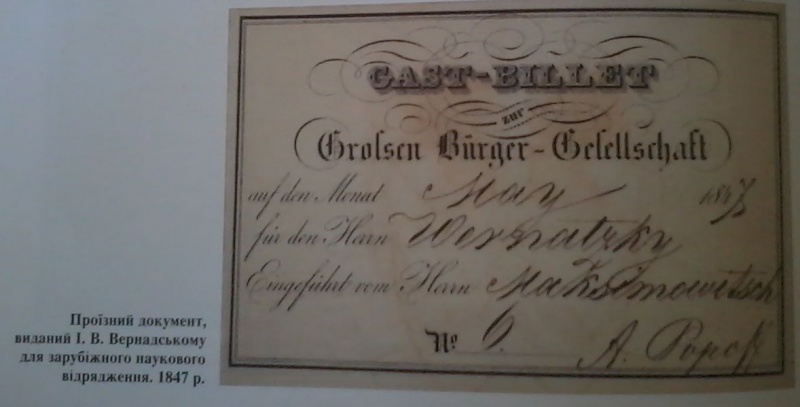 GAST-BILLET
zur
Groſsen Bürger-Geſellschaft
auf den Monat May 1847
für den Herrn Wernatzky
Eingeführt vom Herrn Maksimowitsch
No 6.
A. Popoff
Проїзний документ,
виданий І. В. Вернадському
для зарубіжного наукового
відрядження. 1847 р.